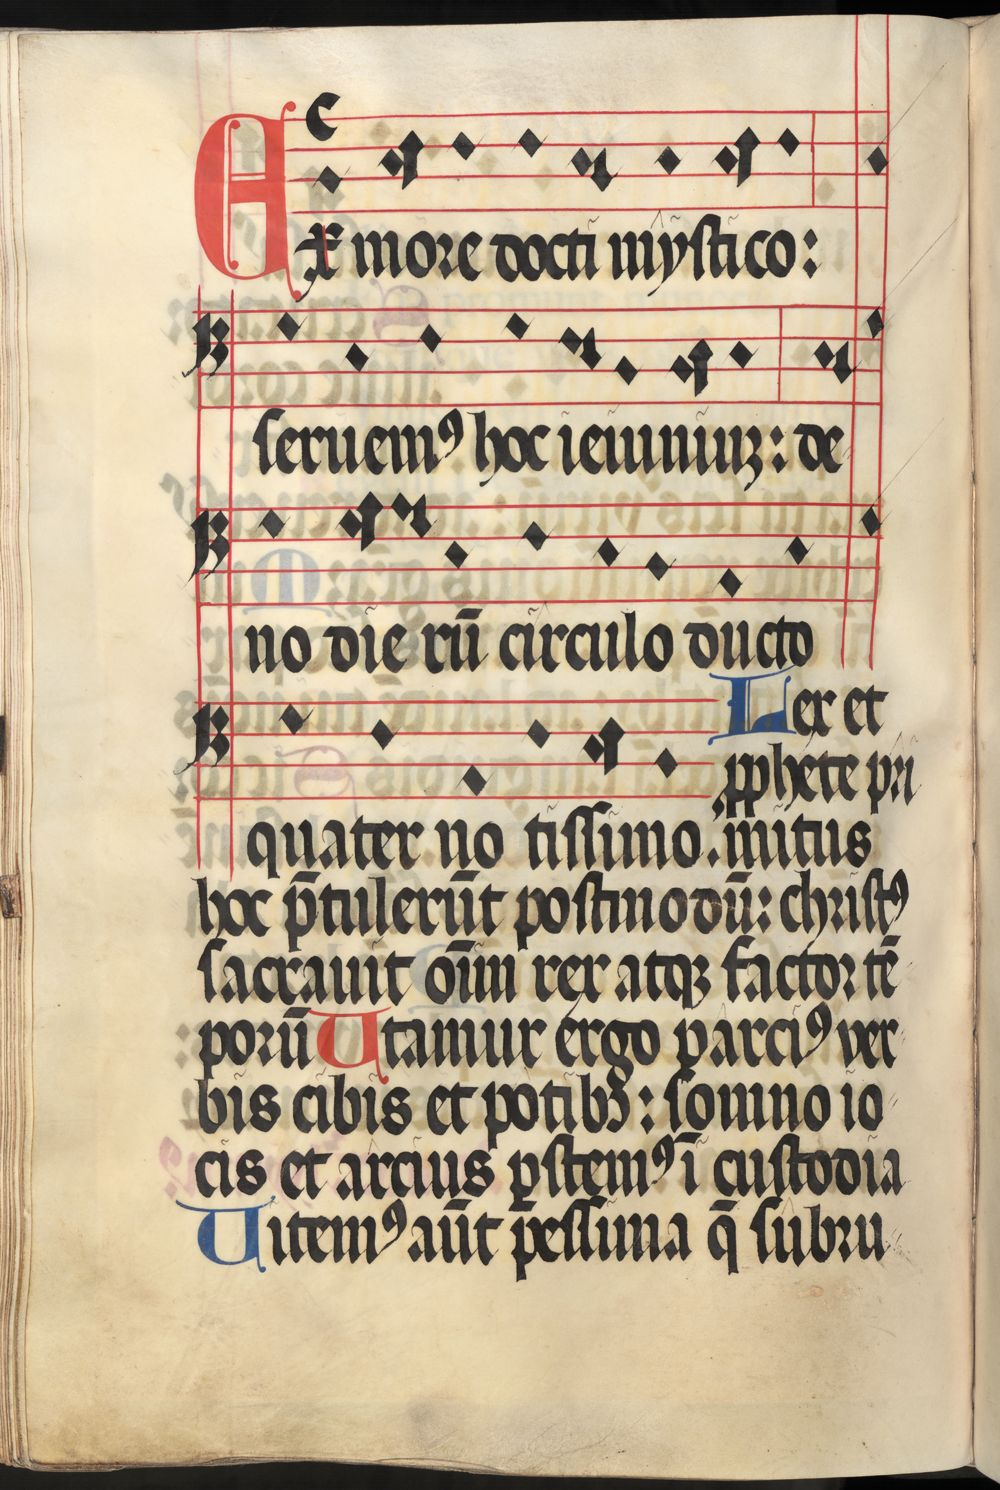 Ex more docti mystico:
seruemꝯ hoc ieiuniuꝫ: de
no die rū circulo ducto
quater no tissimo. Lex et
ꝓphete pri
mitus
hoc p̄tulerūt postmodū: christꝯ
sacrauit oīm rex atqꝫ factor tē
porū Utamur ergo parciꝯ ver
bis cibis et potibꝫ: somno io
cis et arcius ꝑstemꝯ ī custodia
Uitemꝯ aūt pessima q̄ subru